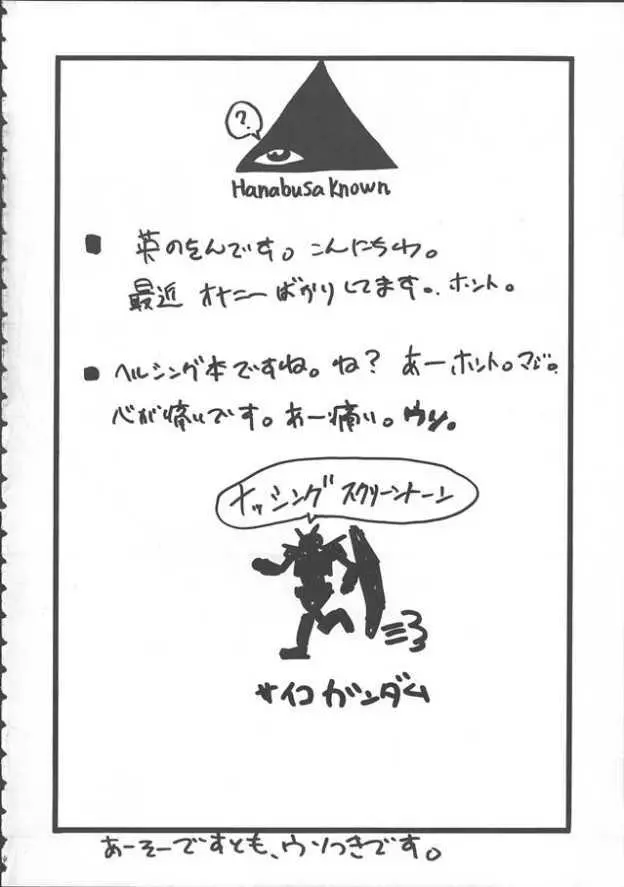 ?
Hanabusa Known
■英のをんです。こんにちわ。
最近 オナニーばかりしてます。ホント。
■ヘルシング本ですね。ね？ あーホント。マジ。
心が痛いです。あー痛い。ウソ。
ナッシングスクリーントーン
サイコガンダム
あーそーですとも、ウソつきです。